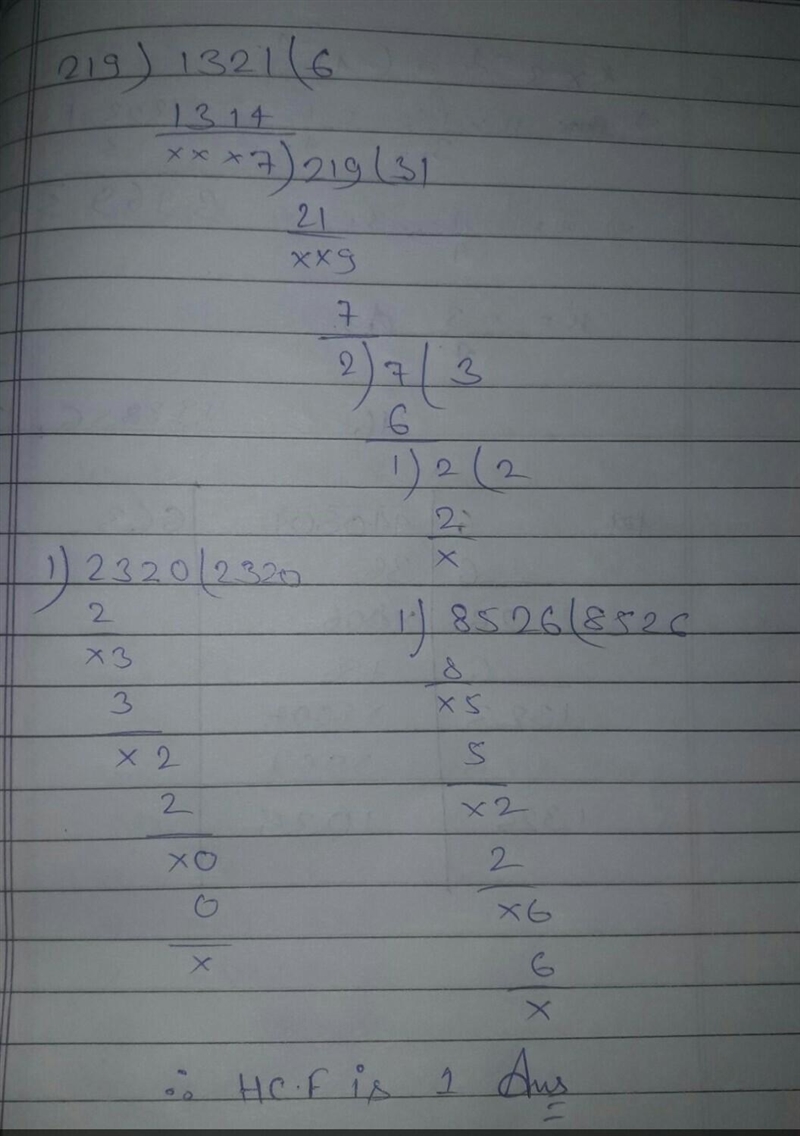 219) 1321 (6
1314
×××7) 219 (31
21
××9
7
2) 7 ( 3
6
1) 2 ( 2
2
×
1) 2320 (2320
2
×3
3
×2
2
×0
0
×
1) 8526 (8526
8
×5
5
×2
2
×6
6
×
∴ H.C.F is 1 Ans